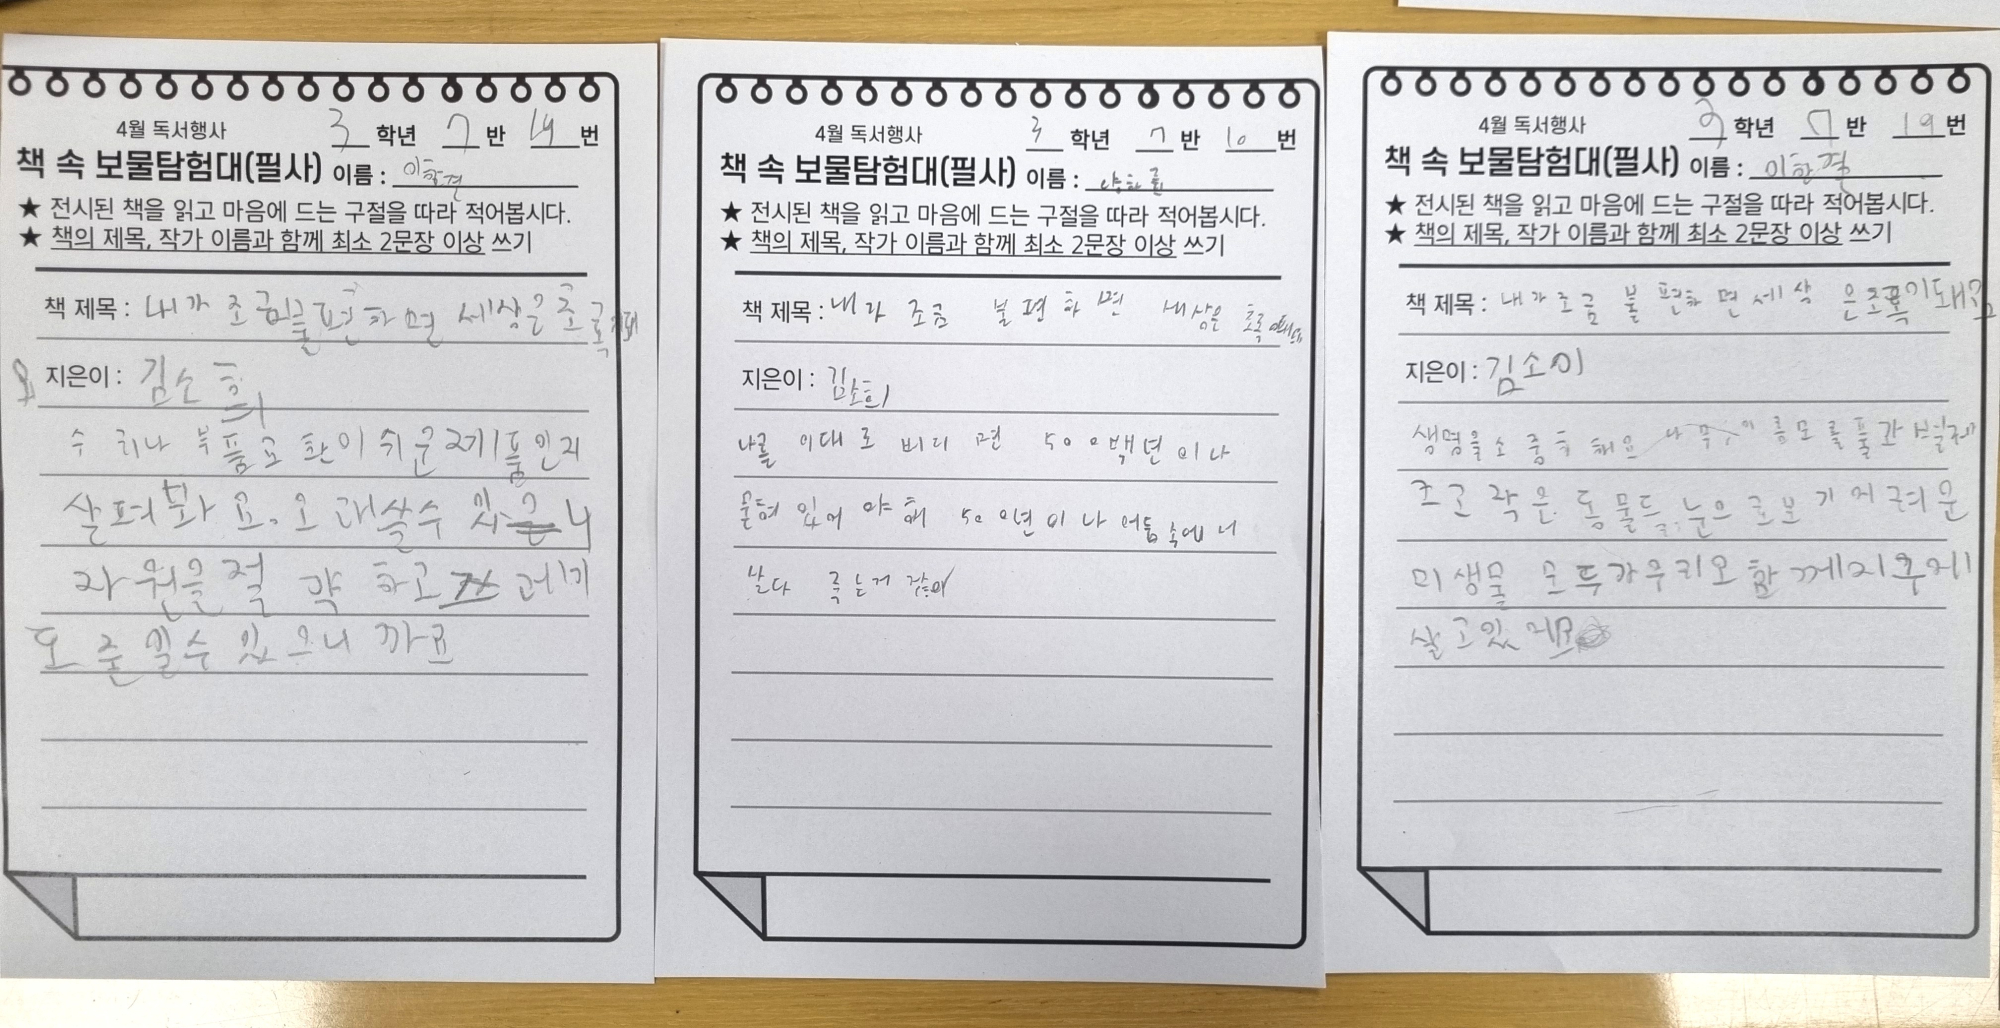 4월 독서행사 3 학년 7 반 19 번
책 속 보물탐험대(필사) 이름 : 이한결
★ 전시된 책을 읽고 마음에 드는 구절을 따라 적어봅시다.
★ 책의 제목, 작가 이름과 함께 최소 2문장 이상 쓰기
책 제목 : 내가 조금 불편하면 세상은 초록
지은이 : 김소희
수 리나 부품교환이 쉬운 제품인지
살펴봐요. 오래쓸수 있으니
자원을 절약하고 쓰레기
도 줄일수 있으니까요
4월 독서행사 3 학년 7 반 10 번
책 속 보물탐험대(필사) 이름 :
★ 전시된 책을 읽고 마음에 드는 구절을 따라 적어봅시다.
★ 책의 제목, 작가 이름과 함께 최소 2문장 이상 쓰기
책 제목 : 내가 조금 불편하면 세상은 초록
지은이 : 김소희
나를 이대로 버리면 500백년이나
묻혀 있어야해 500년이나 어둠속에
살다 죽는거
4월 독서행사 3 학년 7 반 19 번
책 속 보물탐험대(필사) 이름 : 이한결
★ 전시된 책을 읽고 마음에 드는 구절을 따라 적어봅시다.
★ 책의 제목, 작가 이름과 함께 최소 2문장 이상 쓰기
책 제목 : 내가 조금 불편하면 세상은 초록이돼?
지은이 : 김소이
생명을 소중히 해요 이름모를풀과 벌레
조그작은 동물들, 눈으로보기어려운
미생물 모두가우리와 함께지구에
살고있